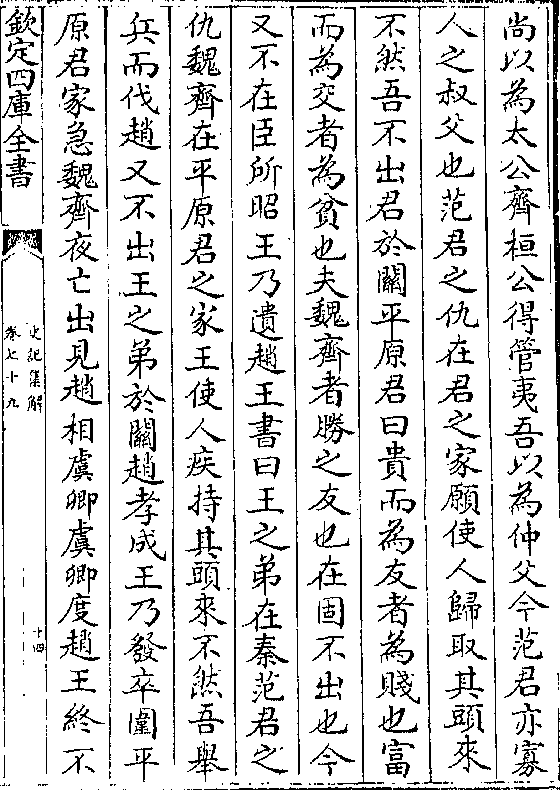 尚以為太公齊桓公得管夷吾以為仲父今范君亦寡
人之叔父也范君之仇在君之家願使人歸取其頭來
不然吾不出君於關平原君曰貴而為友者為賤也富
而為交者為貧也夫魏齊者勝之友也在固不出也今
又不在臣所昭王乃遺趙王書曰王之弟在秦范君之
仇魏齊在平原君之家王使人疾持其頭來不然吾舉
兵而伐趙又不出王之弟於關趙孝成王乃發卒圍平
原君家急魏齊夜亡出見趙相虞卿虞卿度趙王終不
欽定四庫全書
史記集解
卷七十九
十四